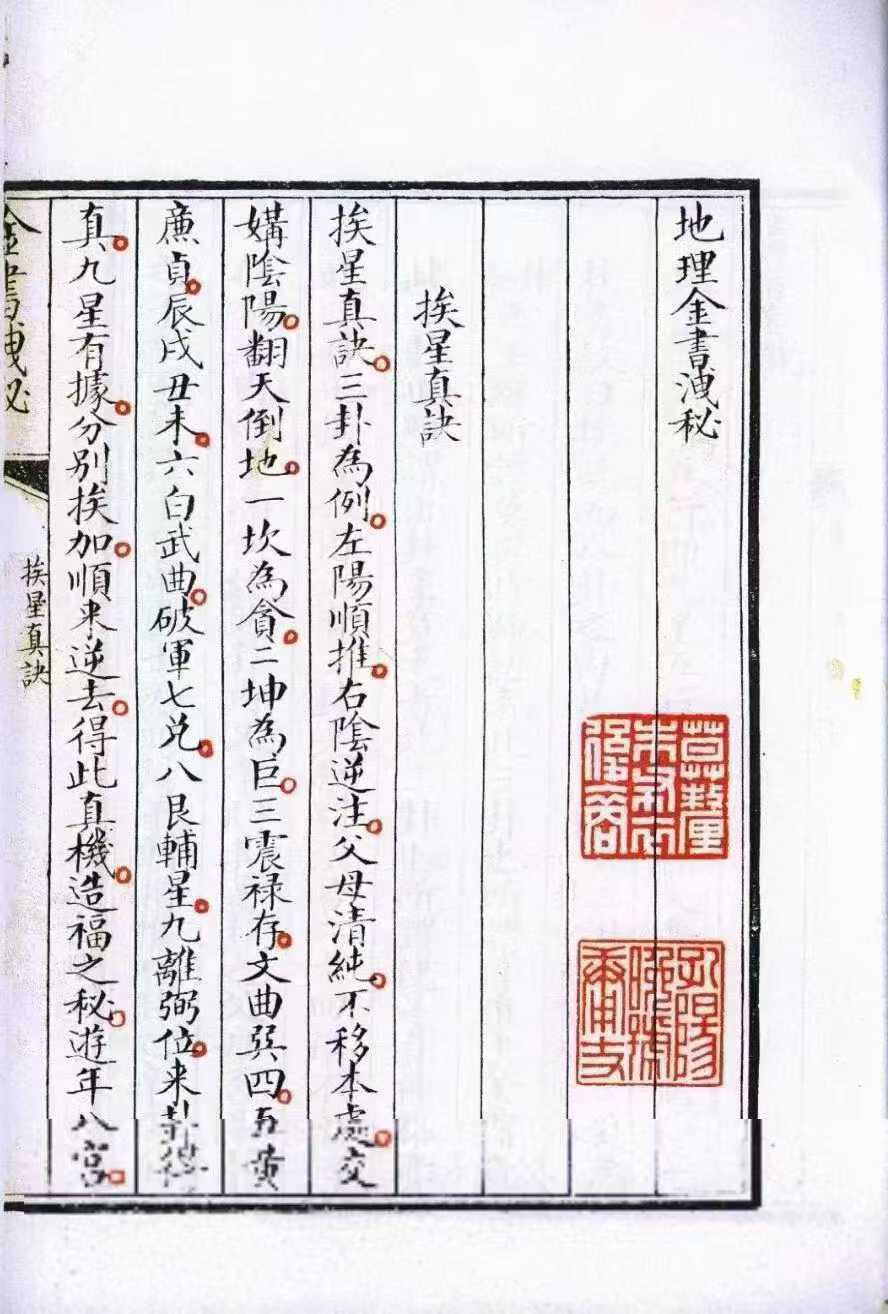 地理金書洩秘
挨星真訣
挨星真訣三卦為例左陽順推右陰逆注父母清純不移本處交
媾陰陽翻天倒地一坎為貪二坤為巨三震禄存文曲巽四五黄
廉貞辰戌丑未六白武曲破軍七兌八艮輔星九離弼位来
真九星有據分別挨加順来逆去得此真機造福之秘遊年八宮
金書洩秘
挨星真訣